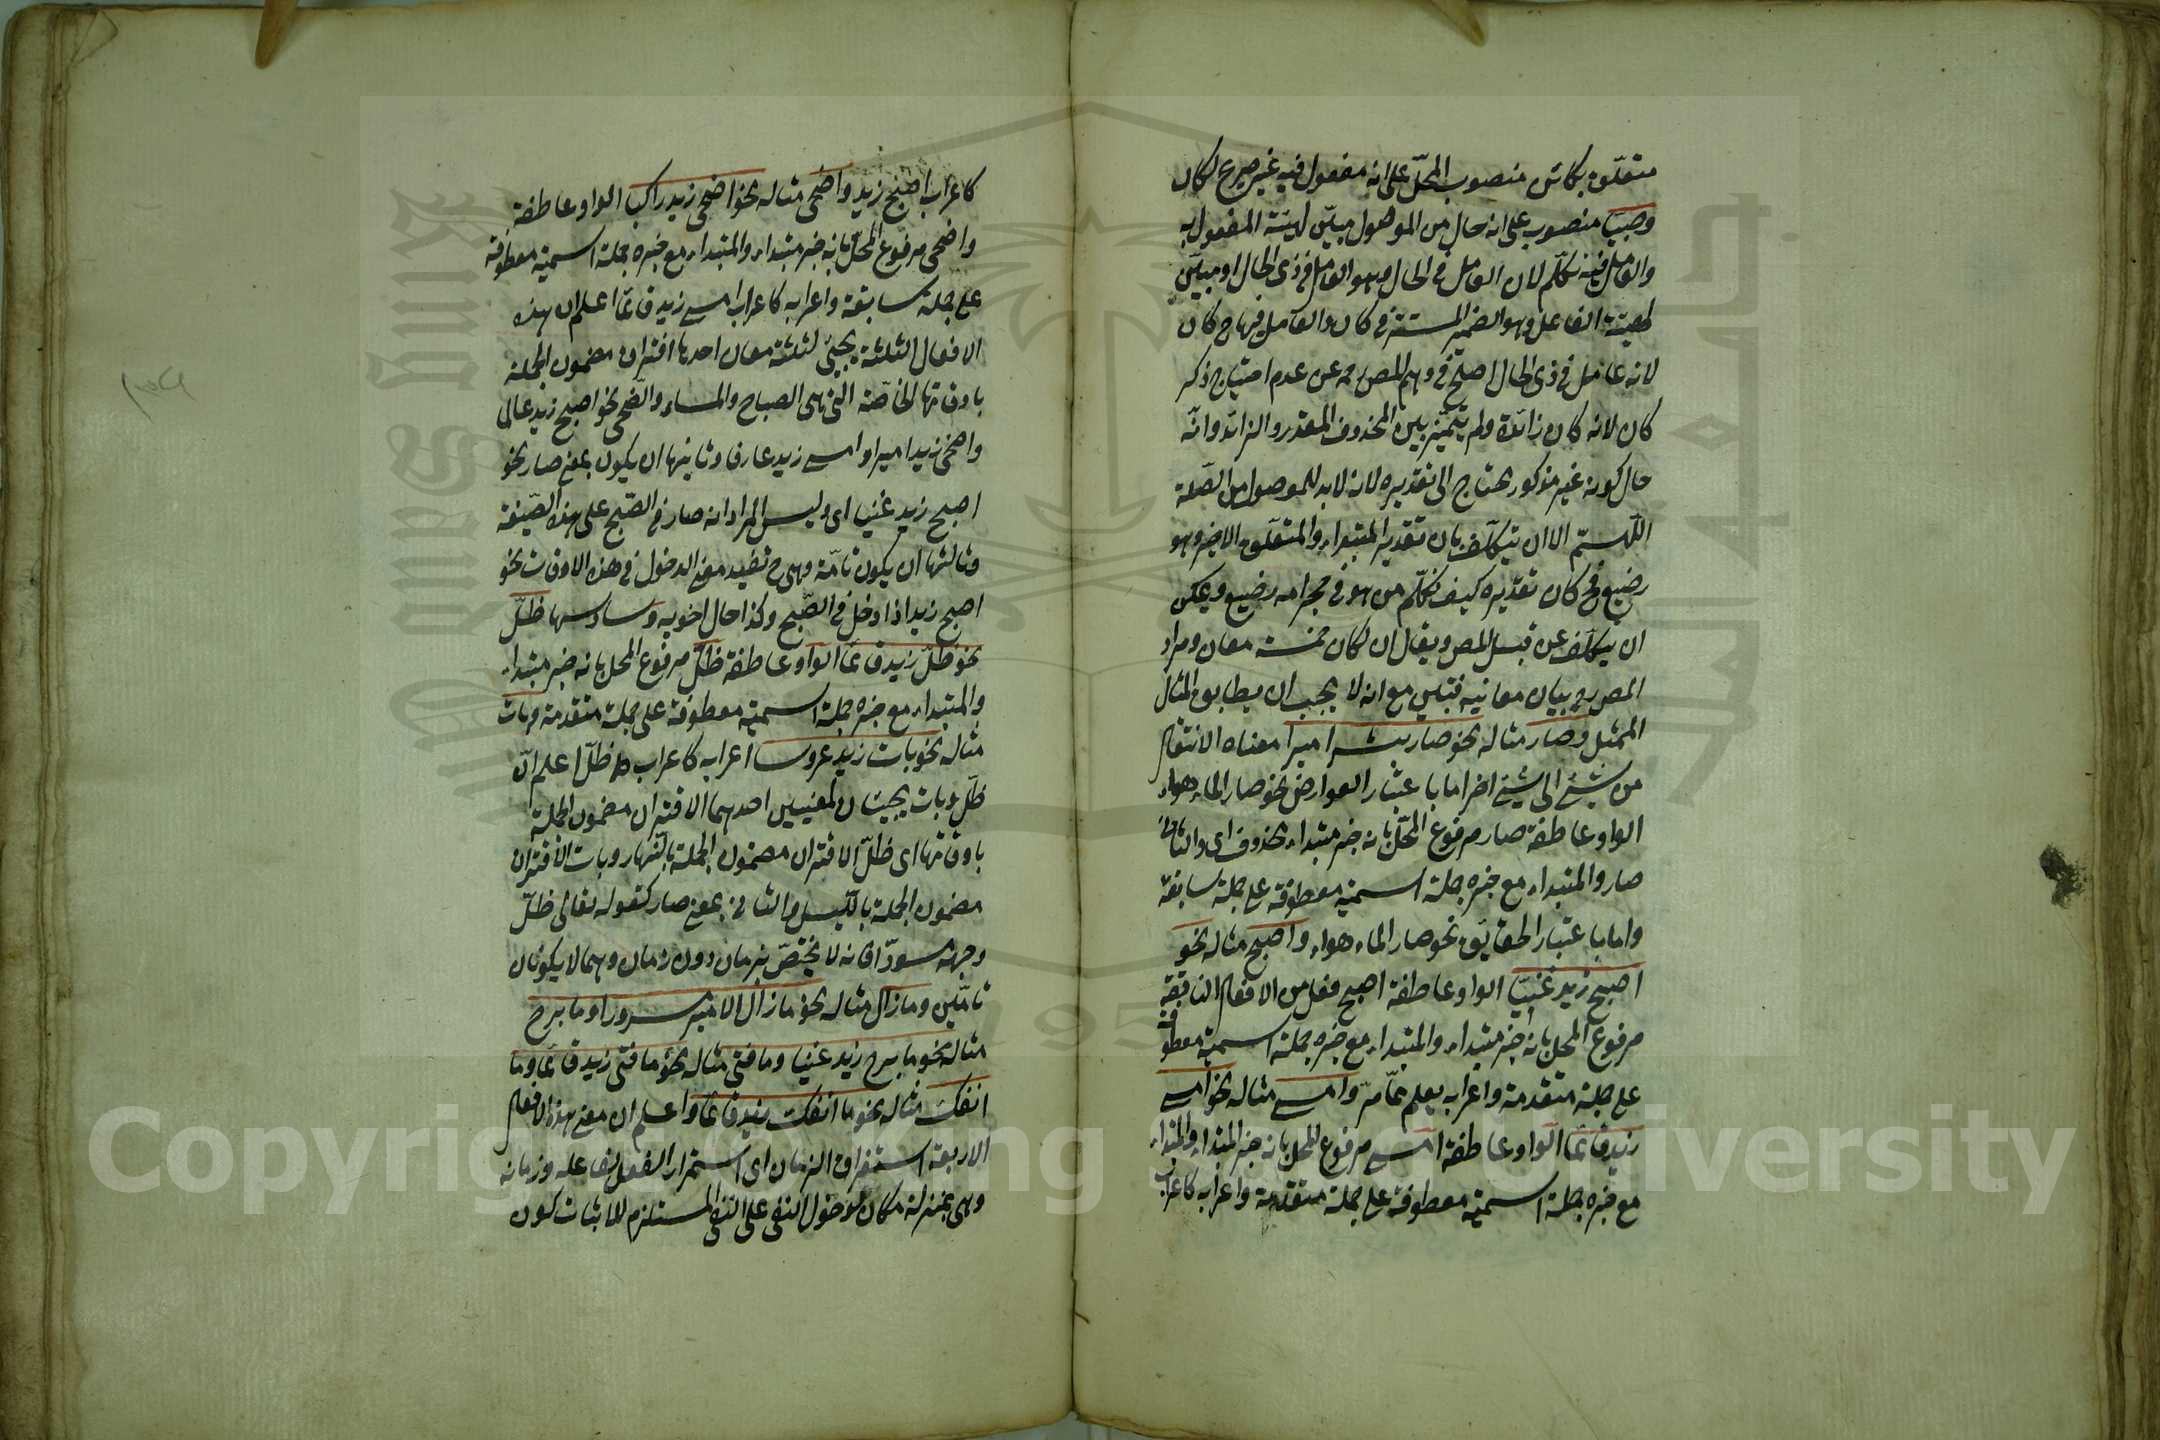 متعلق بكائن منصوب المحلّ على انه مفعول فيه غير صريح لكان
وصبيّا منصوب على انه حال من الموصول مبيّن لهيئة المفعول به
والعامل فيه نكلّم لان العامل فى الحال هو العامل فى ذى الحال او مبيّن
لهيئة الفاعل وهو الضمير المستتر فى كان والعامل فيها ح كان
لانه عامل فى ذى الحال اصلح فى وهم المص مه عن عدم احتياج ذكر
كان لانه كان زائدة ولم يتميّز بين المحذوف المقدر والزائد وانّه
حال كونه غير مذكور يحتاج الى تقديره لانه لابد للموصول من الصّلة
اللّهمّ الا ان يتكلّف بان تقدير المبتداء والمتعلّق الاخير وهو
رضيع فح كان تقديره كيف نكلّم من هو فى حجر امه رضيع ويمكن
ان يتكلّف عن قبل المص ويقال ان لكان خمسة معان ومراد
المص ره بيان معانيه فتبيين مع انه لا يجب ان يطابق المثال
الممثل وصار مثاله نحو صار بشر اميرا معناه الانتقال
من شئ الى شئ اخر اما باعتبار العوارض نحو صار الماء هواء
الواو عاطفة صار مرفوع المحلّ بانه خبر مبتداء محذوف اى والثانى
صار والمبتداء مع خبره جملة اسمية معطوفة على جملة سابقة
واما باعتبار الحقايق نحو صار الماء هواء واصبح مثاله نحو
اصبح زيد غنيّا الواو عاطفة اصبح فعل من الافعال الناقصة
مرفوع المحل بانه خبر مبتداء والمبتداء مع خبره جملة اسمية معطوفة
على جملة متقدمة واعرابه يعلم ممّا مرّ وامسى مثاله نحو امسى
زيد قائما الواو عاطفة امسى مرفوع المحل بانه خبر المبتداء والمبتداء
مع خبره جملة اسمية معطوفة على جملة متقدمة واعرابه كاعراب
كاعراب اصبح زيد واضحى مثاله نحو اضحى زيد راكبا الواو عاطفة
واضحى مرفوع المحلّ بانه خبر مبتداء والمبتداء مع خبره جملة اسمية معطوفة
على جملة سابقة واعرابه كاعراب امسى زيد قائما اعلم ان هذه
الافعال الثلثة يجيئ لثلثة معان احدها اقتران مضمون الجملة
باوقاتها الخاصّة التى هى الصباح والمساء والضّحى نحو اصبح زيد عالما
واضحى زيد اميرا وامسى زيد عارفا وثانيها ان يكون بمعنى صار نحو
اصبح زيد غنيا اى وليس المراد انه صار فى الصّبح على هذه الصّيغة
وثالثها ان يكون تامّة وهى ح تفيد معنى الدخول فى هذه الاوقات نحو
اصبح زيد اذا دخل فى الصّبح وكذا حال اخويه وسادسها ظلّ
نحو ظلّ زيد قائما الواو عاطفة ظلّ مرفوع المحل بانه خبر مبتداء
والمبتداء مع خبره جملة اسمية معطوفة على جملة متقدمة وبات
مثاله نحو بات زيد عروسا اعرابه كاعراب ظلّ اعلم انّ
ظلّ وبات يجيئان لمعنيين احدهما الاقتران مضمون الجملة
باوقاتها اى ظلّ الاقتران مضمون الجملة بالنّهار وبات الاقتران
مضمون الجملة بالّليل والثانى بمعنى صار كقوله تعالى ظلّ
وجهه مسودّا فانه لا يختصّ بزمان دون زمان وهما لا يكونان
تامّين ومازال مثاله نحو مازال الامير مسرورا وما برح
مثاله نحو ما برح زيد غنيا وما فتئ مثاله نحو ما فتئ زيد قائما وما
انفكّ مثاله نحو ما انفكّ زيد قائما واعلم ان معنى هذه الافعال
الاربعة استغراق الزمان اى استمرار الفعل لفاعله وزمانه
وهى بمنزلة مكان لدخول النفى على النفى المستلزم للاثبات كون
Copyright © King University